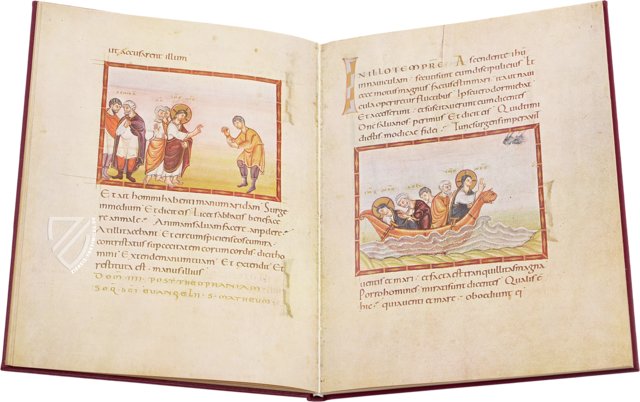 ut accusarent illum
Et ait homini habenti manum aridam Surge
in medium Et dicit eis Licet sabbatis benefacere
an male Animam salvam facere an perdere
At illi tacebant Et circumspiciens eos cum ira
contristatus super cecitatem cordis eorum dicit homi
ni Extende manum tuam Et extendit Et
restituta est manus illius
DOM IIII POST THEOPHANIAM
SEQ SCI EUANGELII S MATHEUM
IN ILLO TEMPRE Ascendente ihu
in naviculam secuti sunt eum discipuli eius Et
ecce motus magnus factus est in mari ita ut navi
cula operiretur fluctibus Ipse vero dormiebat
Et accesserunt et suscitaverunt eum dicentes
Dne salva nos perimus Et dicit eis Quid timidi
estis modicae fidei Tunc surgens imperavit
ventis et mari et facta est tranquillitas magna
Porro homines mirati sunt dicentes Qualis est
hic quia venti et mare oboediunt ei